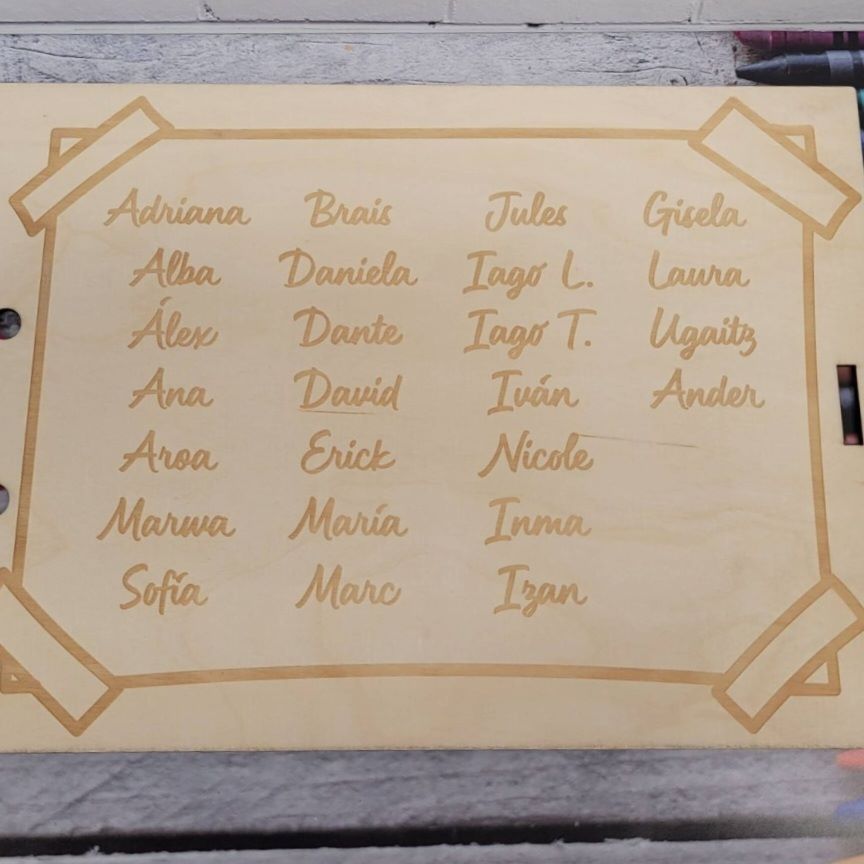 Adriana Brais Jules Gisela
Alba Daniela Iago L. Laura
Álex Dante Iago T. Ugaitz
Ana David Iván Ander
Aroa Erick Nicole
Marwa María Inma
Sofía Marc Izan